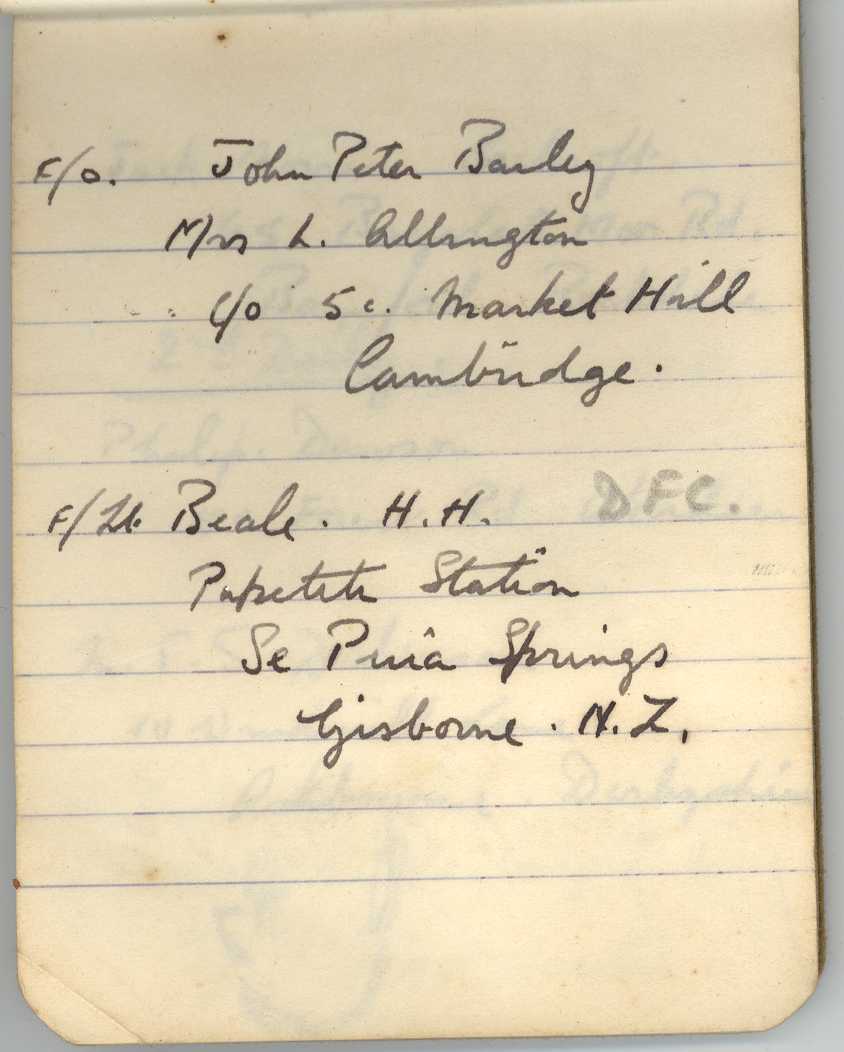 F/O. John Peter Barley
Mrs L. Allington
C/o 5c. Market Hill
Cambridge.
F/Lt. Beale. H.H. DFC.
Station
Se Puia Springs
Gisborne. N.Z.